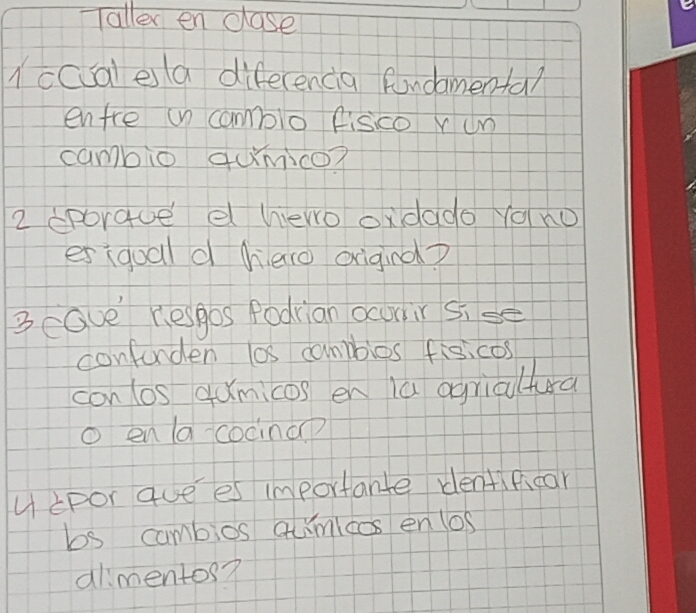 Taller en clase
1 ¿Cual es la diferencia fundamental
entre un cambio fisco y un
cambio químico?
2 ¿porque el hierro oxidado ya no
es igual al hierro original?
3 ¿Qué riesgos Podrian ocurrir si se
confunden los cambios fisicos
con los químicos en la agricultura
o en la cocina?
4 ¿Por que es importante identificar
los cambios químicos en los
alimentos?